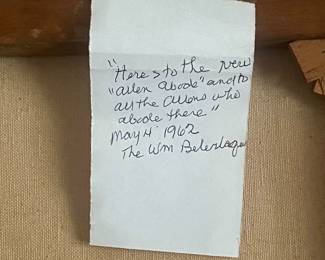 "Here's to the new
"allen abode" and to
all the Allens who
abode there"
May 4 1962
The Wm